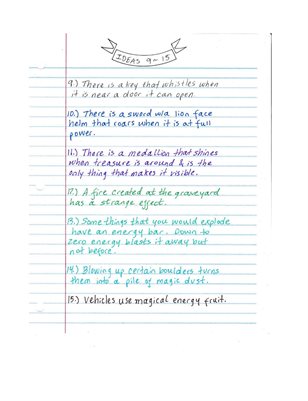 IDEAS 9-15
9.) There is a key that whistles when
it is near a door it can open.
10.) There is a sword w/a lion face
helm that roars when it is at full
power.
11.) There is a medallion that shines
when treasure is around & is the
only thing that makes it visible.
12.) A fire created at the graveyard
has a strange effect.
13.) Some things that you would explode
have an energy bar. Down to
zero energy blasts it away but
not before.
14.) Blowing up certain boulders turns
them into a pile of magic dust.
15.) Vehicles use magical energy fruit.